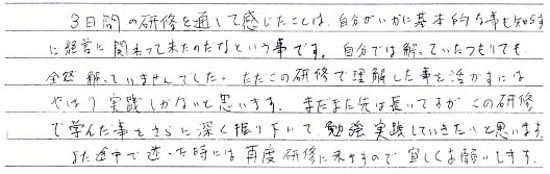 3日間の研修を通して感じたことは、自分がいかに基本的な事も知らず
に経営に関わって来たのだなという事です。自分では解っていたつもりでも
全然解っていませんでした。ただこの研修で理解した事を活かすには
やはり実践しかないと思います。まだまだ先は長いですが この研修
で学んだ事をさらに深く掘り下げて、勉強実践していきたいと思います。
また途中で迷った時には再度研修に来ますので宜しくお願いします。